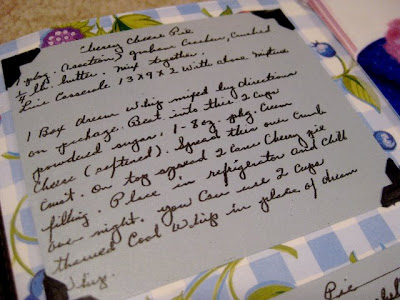 Cherry Cheese Pie
1 pkg. (section) Graham Crackers, Crushed
¼ lb. butter. Mix together.
Line Casserole 13 X 9 X 2 with above mixture
1 Box dream Whip mixed by directions
on package. Beat into this 2 Cups
powdered sugar, 1-8 oz. pkg. Cream
Cheese (softened). Spread this over crumb
crust. On top spread 2 cans Cherry pie
filling. Place in refrigerator and chill
over night. you can use 2 Cups
thawed Cool Whip in place of dream
Whip.
Pie